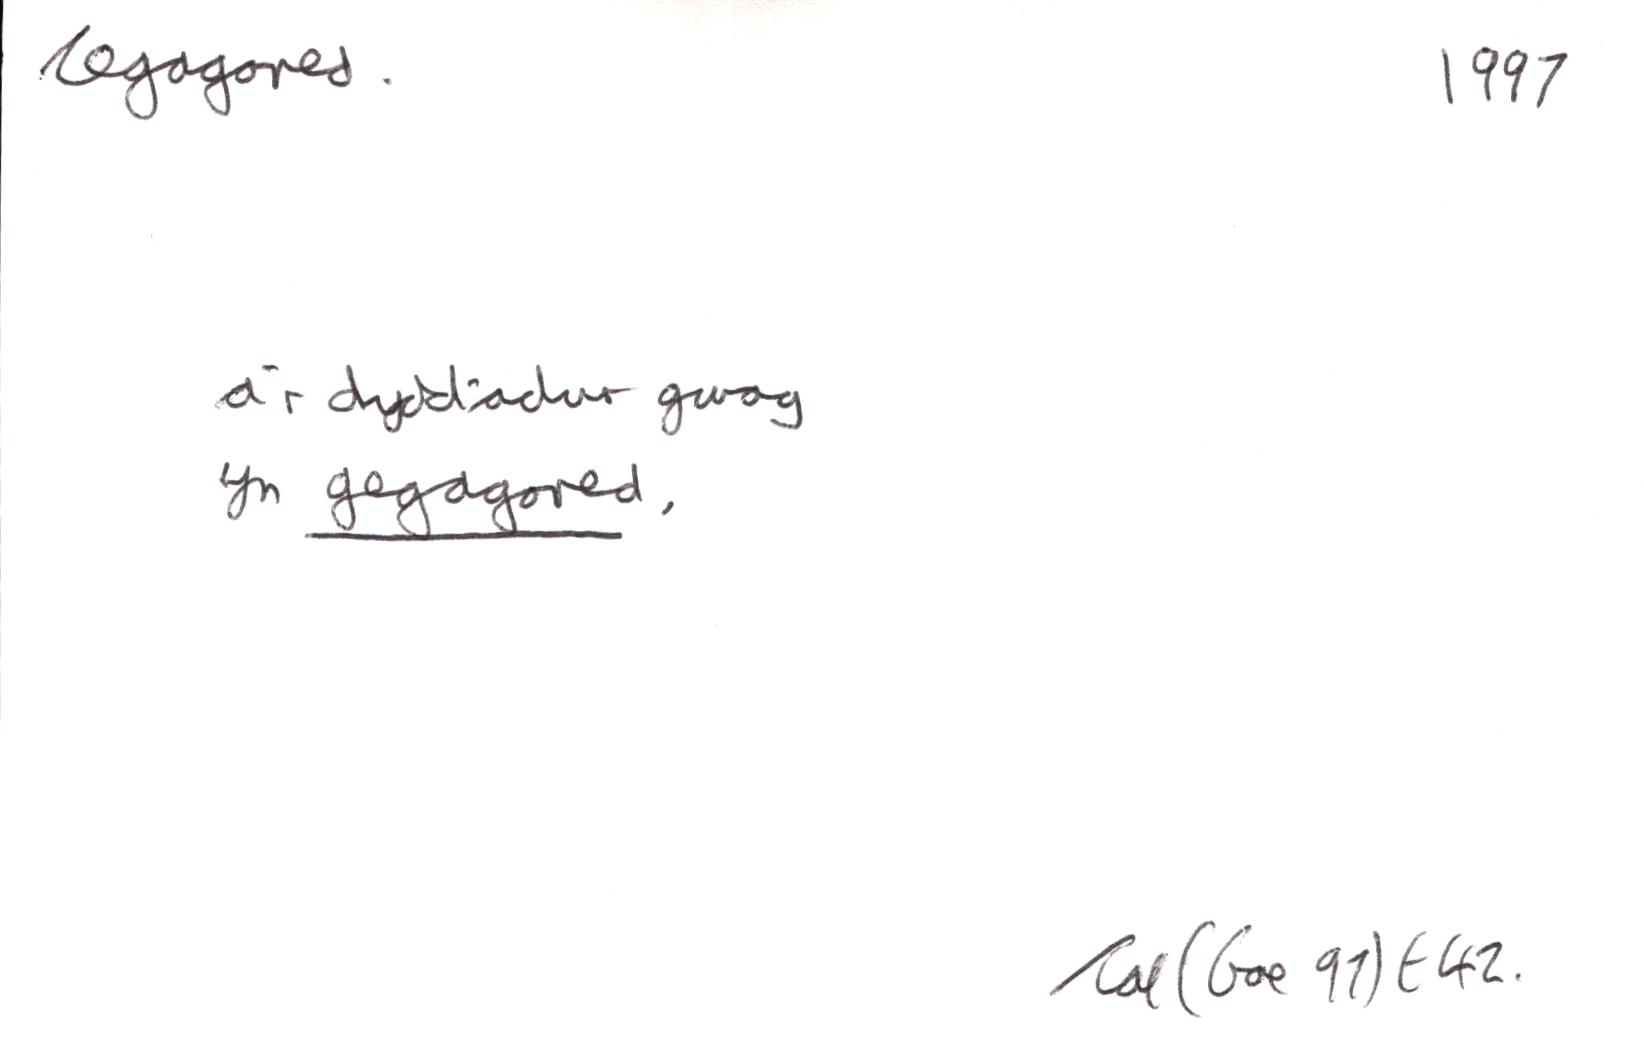 Cegagored.
1997
a'r dyddiadur gwag
yn gegagored,
Cal (Gae 97) t 42.